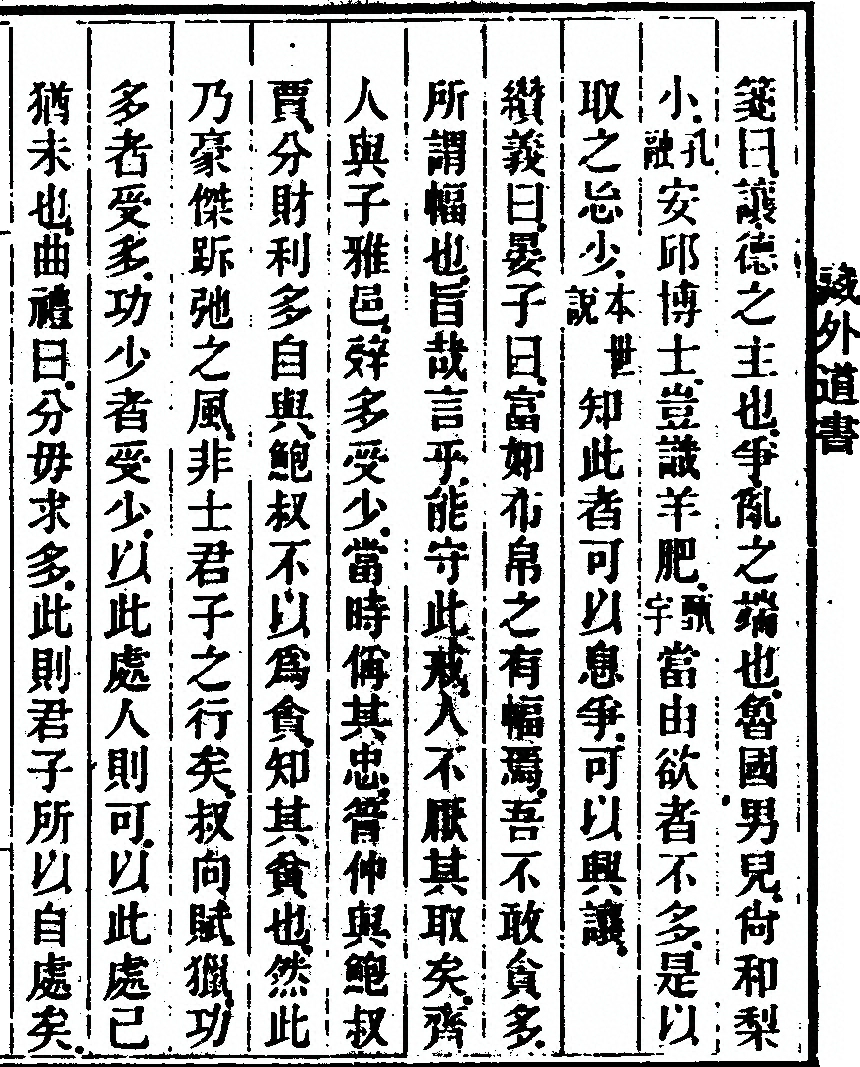 藏外道書
箋曰讓德之主也爭亂之端也魯國男兒尙和梨
小孔融安邱博士豈識羊肥甄宇當由欲者不多是以
取之忩少本世說知此者可以息爭可以興讓
纘義曰晏子曰富如布帛之有幅焉吾不敢貪多
所謂幅也旨哉言乎能守此戒人不厭其取矣齊
人與子雅邑辤多受少當時偁其忠管仲與鮑叔
賈分財利多自與鮑叔不以爲貪知其貧也然此
乃豪傑跅弛之風非士君子之行矣叔向賦獵功
多者受多功少者受少以此處人則可以此處已
猶未也曲禮曰分毋求多此則君子所以自處矣